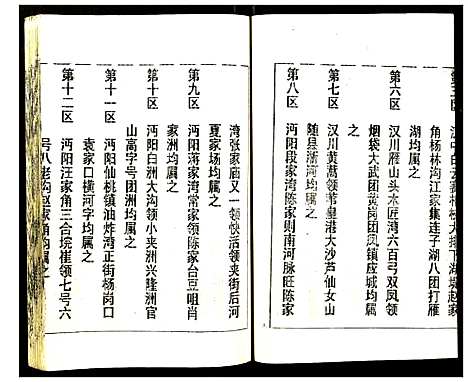 角杨林沟江家集连子湖八团打雁
湖均属之
第六区
汉川雁山头水匠湾六百弓双凤领
烟袋大武团黄岗团凤镇应城均属
之
第七区
汉川黄蒿领茅皇港大沙芦仙女山
随县浙河均属之
第八区
沔阳段家湾陈家则南河脉旺陈家
湾张家庙又一领快活领夹街后河
夏家场均属之
第九区
沔阳蒋家湾常家领陈家台豆咀肖
家洲均属之
第十区
沔阳白洲大沟领小夹洲兴隆洲官
山高字号团洲均属之
第十一区
沔阳仙桃镇油炸湾正街杨岗口
袁家口横河字均属之
第十二区
沔阳汪家角三合垸崔领七号六
号八老沟赵家角均属之